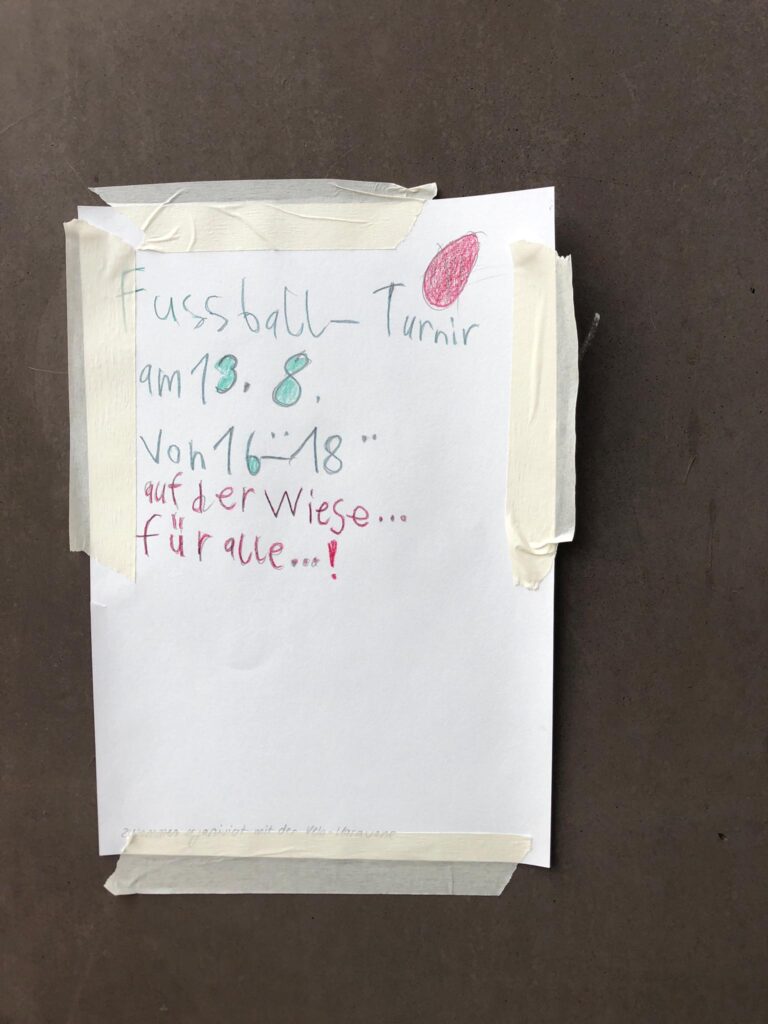 Fussball-Turnir
am 13. 8.
von 16¨-18¨
auf der Wiese...
für alle...!
zusammen organisiert mit der Velo-Karawane